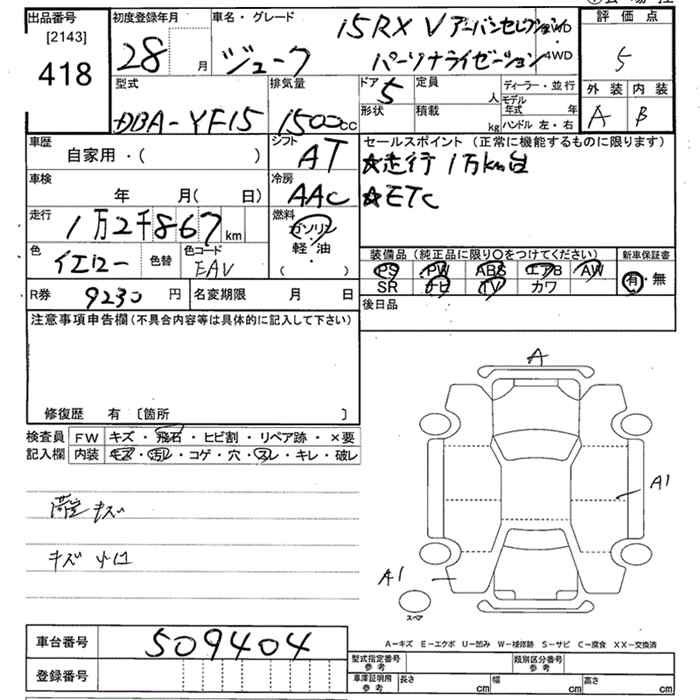 出品番号
[2143]
418
初度登録年月
28 月
車名・グレード
ジューク
15RX V アーバンセレクション
パーソナライゼーション 4WD
評価点
5
外装 内装
A B
型式
DBA-YF15
排気量
1500cc
ドア 5
定員 人
形状
積載 kg
ディーラー・並行
モデル年式 年
ハンドル 左・右
車歴
自家用・( )
シフト AT
セールスポイント(正常に機能するものに限ります)
☆走行 1万km台
☆ETC
車検 年 月( 日)
冷房 AAC
走行 1万2千867 km
燃料
ガソリン
軽・油
( )
色 イエロー
色替
色コード EAV
装備品(純正品に限り○をつけてください)
PS PW ABS エアB AW
SR ナビ TV カワ
新車保証書
有・無
R券 9230円
名変期限 月 日
後日品
注意事項申告欄(不具合内容等は具体的に記入して下さい)
修復歴 有 [箇所 ]
検査員記入欄
FW キズ・飛石・ヒビ割・リペア跡・×要
内装 キズ・汚レ・コゲ・穴・スレ・キレ・破レ
キズ
キズ
A
A1
A1
スペア
車台番号 509404
登録番号
A-キズ E-エクボ U-凹み W-補修跡 S-サビ C-腐食 XX-交換済
型式指定番号 参考
類別区分番号 参考
車庫証明用 参考
長さ cm 幅 cm 高さ cm